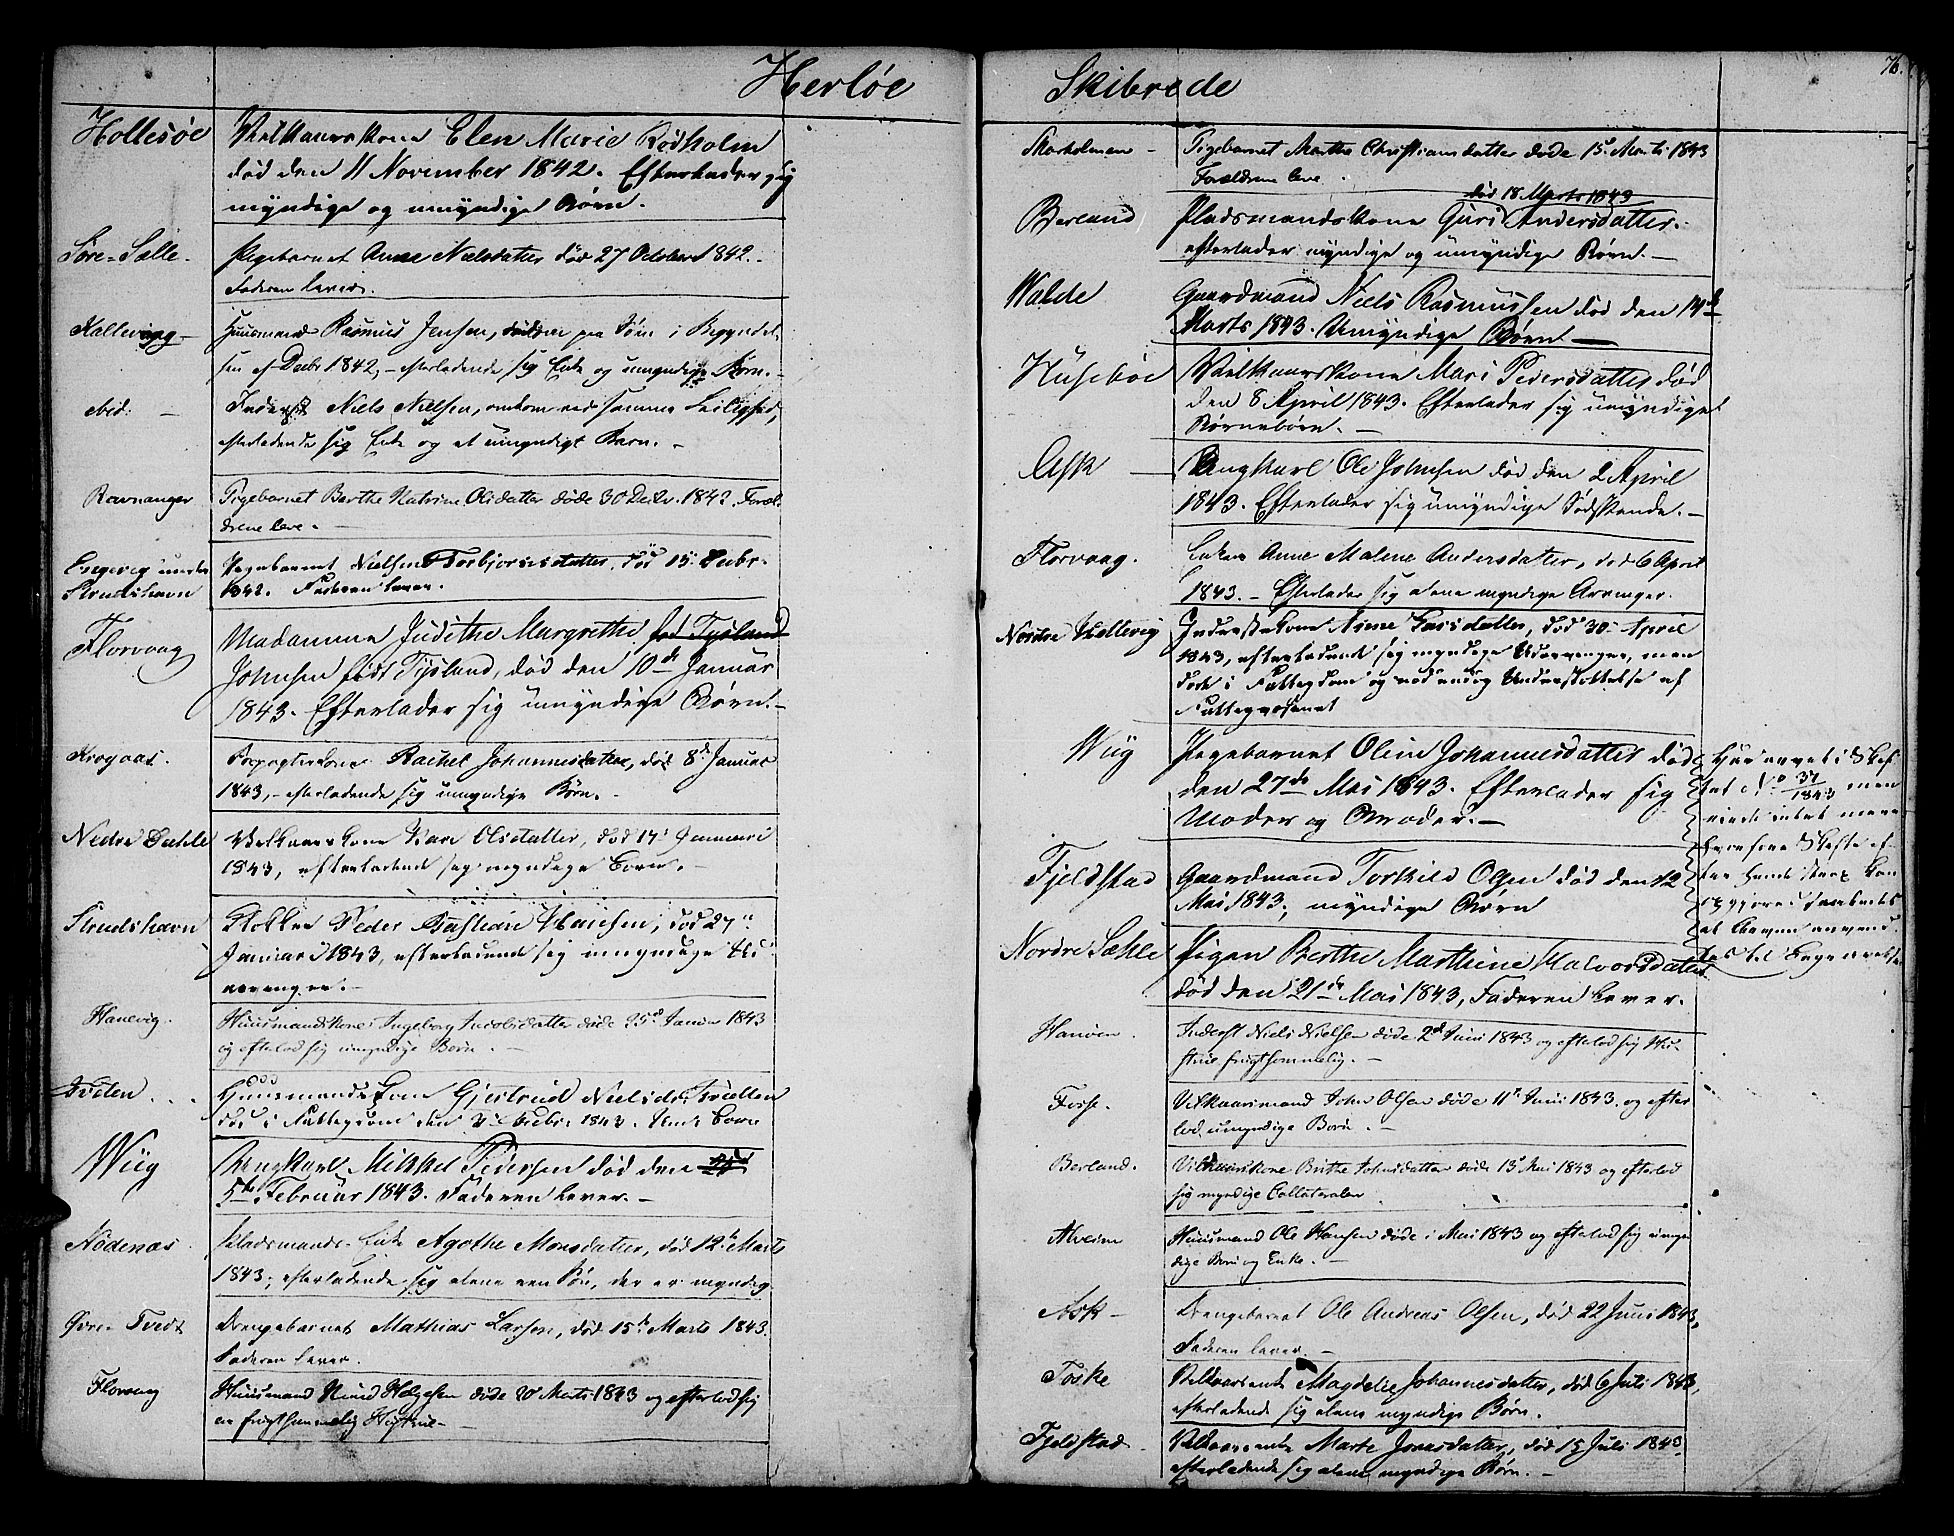 Herløe
Hollesøe
Velkaarskone Elen Marie Rødholm
død den 11 November 1842. Efterlader sig
myndige og umyndige Børn.
Søre-Sælle.
Pigebarnet Anne Nielsdatter død 27 October 1842.
Faderen lever.
Hallevaag
Huusmand Rasmus Jensen, paa Søen i Begyndel-
sen af Decbr 1842, efterladende sig Enke og umyndige Børn.
ibid:
Inderst Niels Nielsen, omkom ved samme Leilighed,
efterladende sig Enke og et umyndigt Barn.
Ravnanger
Pigebarnet Berthe Katrine Olsdatter døde 30 Decbr. 1842. Foræl-
drene leve.
under
Strudshavn
Pigebarnet Nielsine Torbjørnsdatter, død 15. Decbr.
1842. Faderen lever.
Florvaag
Madamme Judithe Margrethe født Tysland
Johnsen født Tysland, død den 10de Januar
1843. Efterlader sig umyndige Børn.
Krogaas.
Rachel Johannesdatter, død 8de Januar
1843, efterladende sig umyndige Børn.
Nedre Dahle
Velkaarskone Kari Olsdatter, død 14 Januari
1843, efterladende sig myndige Børn.
Strudshavn
Peder Hansen, død 27
Januari 1843, efterladende sig myndige
arvinger.
Hanevig.
Huusmandskone Ingeborg Jacobsdatter døde 25d Januar 1843
og efterlod sig umyndige Børn.
Tveten
Huusmandskone Gjertrud Nielsdr Tveten
død i Fattigdom den Febr. 1843. Børn
Wiig
Ungkarl Mikkel Pedersen død den
5te Februar 1843. Faderen lever.
Nødenæs.
Pladsmands Enke Agathe Monsdatter, død 12te Marts
1843; efterladende sig alene een Søn, der er myndig
Øvre Tvedt
Drengebarnet Mathias Larsen, død 15de Marts 1843.
Faderen lever.
Florvaag
Huusmand Knud Helgesen døde 20 Marts 1843 og efterlod sig
en frugtsommelig Hustrue.
76.
Skibrede
Skarholmen
Pigebarnet Marthe Christiansdatter døde 15d Marts 1843
Forældrene leve.
død 18 Marts 1843
Berland
Pladsmandskone Guri Andersdatter.
efterlader myndige og umyndige Børn.
Walde
Gaardmand Niels Rasmussen død den 14de
Marts 1843. Umyndige Børn
Husebøe
Velkaarskone Mari Pedersdatter død
den 8 April 1843. Efterlader sig umyndige
Børnebørn.
Ask
Ungkarl Ole Johnsen død den 2 April
1843. Efterlader sig umyndige Sødskende.
Florvaag.
Enken Anne Malene Andersdatter, død 6 April
1843. Efterlader sig alene myndige Arvinger.
Nordre Hallevig
Inderstekone Anne Larsdatter, død 30 April
1843, efterladende sig myndige Udarvinger, men
døde i Fattigdom og nød endog Understøttelse af
Fattigvæsenet
Wiig
Pigebarnet Oline Johannesdatter død
den 27de Mai 1843. Efterlader sig
Moder og Broder.
Har arvet i Skif-
tet No 37/1843 men
eiede intet mere
hvorfore Skifte ef-
ter hende
at Arven anvend-
tes til Begravelse
Fjeldstad
Gaardmand Torkild Olsen død den 12
Mai 1843; myndige Børn
Nordre Sæhle
Pigen Berthe Marthine Halvorsdatter
død den 21de Mai 1843, Faderen lever.
Hanøen.
Inderst Niels Nielsen døde 2d Juni 1843 og efterlod sig Hu-
strue frugtsommelig.
Fosse.
Vilkaarsmand John Olsen døde 11te Juni 1843. og efter
lod umyndige Børn.
Berland.
Vilkaarskone Brithe Johnsdatter døde 13d Mai 1843 og efterlod
sig myndige Collateraler
Alveim
Huusmand Ole Hansen døde i Mai 1843 og efterlod sig umyn-
dige Børn og Enke.
Ask
Drengebarnet Ole Andreas Olsen, død 22 Juni 1843,
Faderen lever.
Toske
Velkaarsenke Magdeli Johannesdatter, død 6 Juli 1843,
efterladende sig alene myndige Børn.
Fjeldstad
Velkaarsenke Marte Jonasdatter, død 15 Juli 1843.
efterladende sig alene myndige Børn.